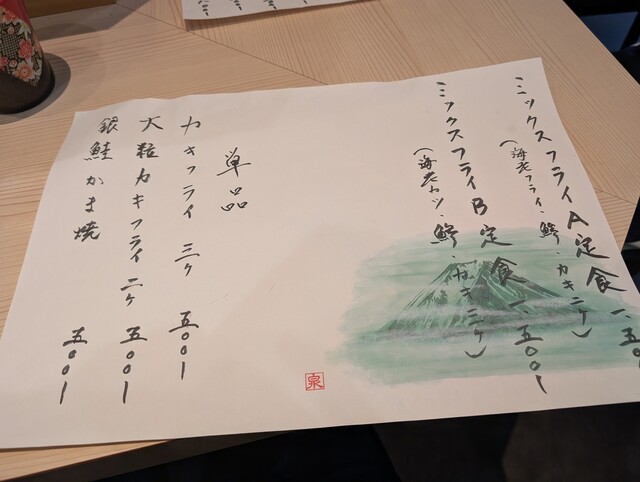 ミックスフライA定食 一、五〇〇ー
(海老フライ・鯵・カキ二ケ)
ミックスフライB定食 一、五〇〇ー
(海老カツ・鯵・カキ二ケ)
単品
カキフライ 三ケ 五〇〇ー
大粒カキフライ 二ケ 五〇〇ー
銀鮭かま焼 五〇〇ー
泉